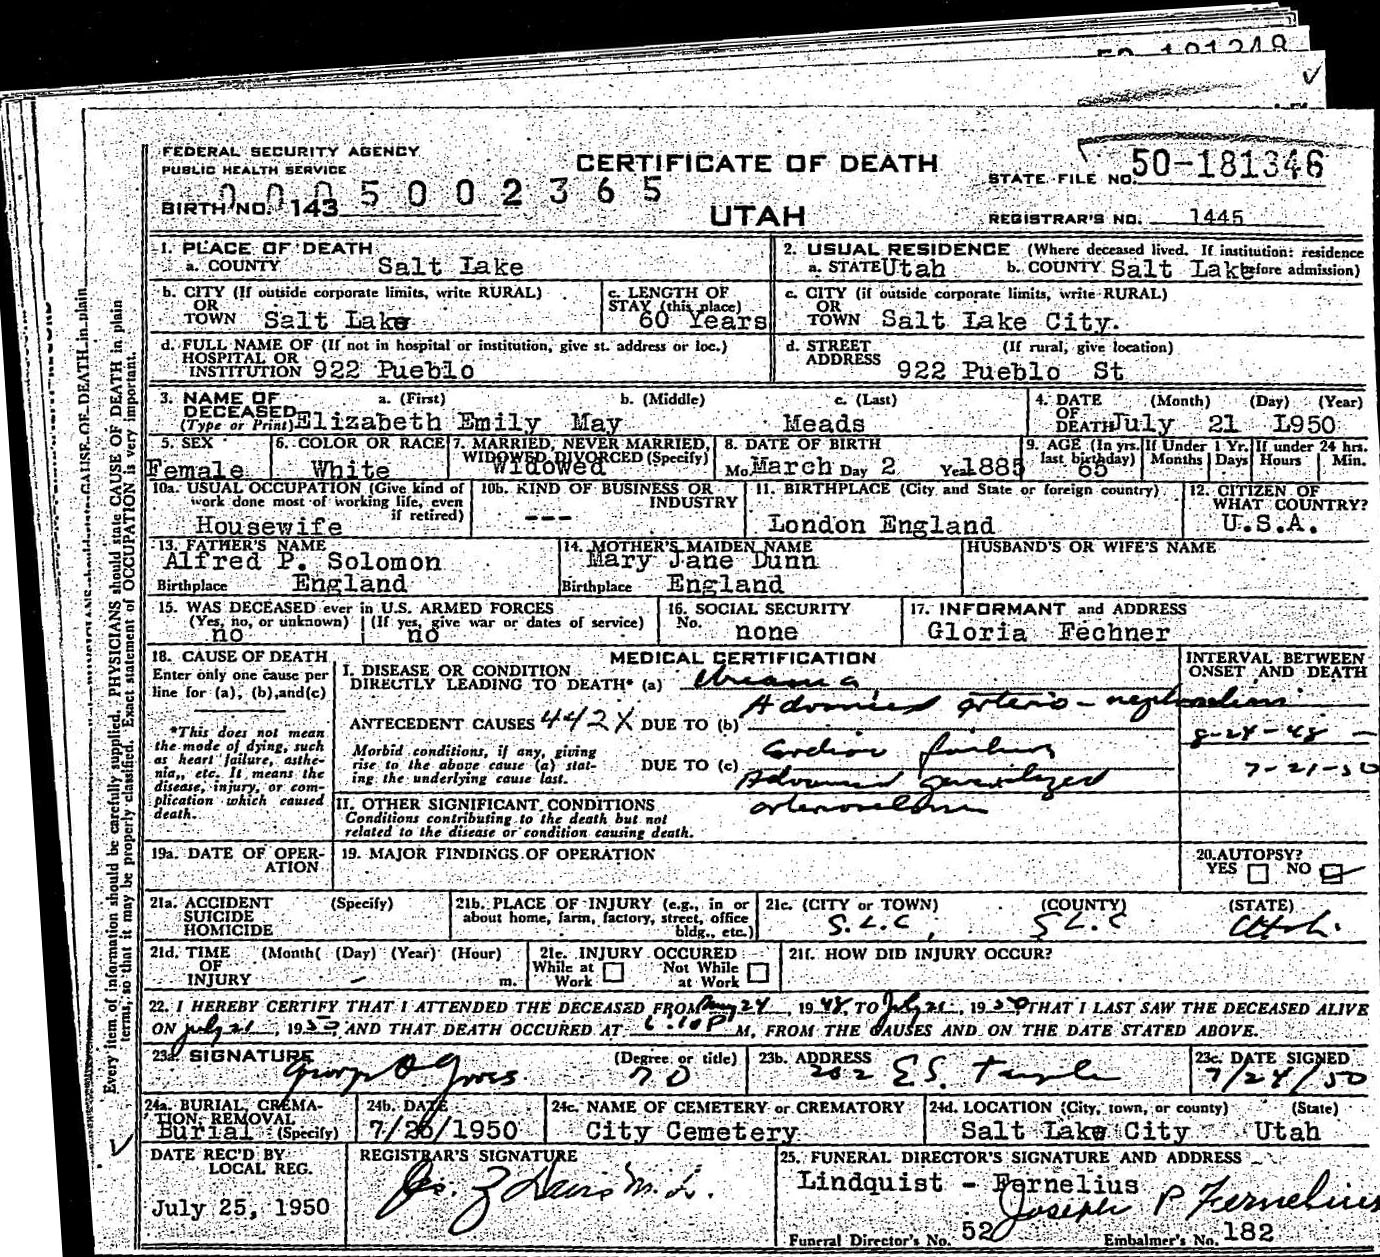 50-181248
FEDERAL SECURITY AGENCY
PUBLIC HEALTH SERVICE
CERTIFICATE OF DEATH
STATE FILE NO. 50-181346
0005002365
BIRTH NO. 143
UTAH
REGISTRAR'S NO. 1445
1. PLACE OF DEATH
a. COUNTY Salt Lake
2. USUAL RESIDENCE (Where deceased lived. If institution: residence before admission)
a. STATE Utah b. COUNTY Salt Lake
b. CITY (If outside corporate limits, write RURAL)
OR
TOWN Salt Lake
c. LENGTH OF
STAY (this place)
60 Years
c. CITY (if outside corporate limits, write RURAL)
OR
TOWN Salt Lake City.
d. FULL NAME OF (If not in hospital or institution, give st. address or loc.)
HOSPITAL OR
INSTITUTION 922 Pueblo
d. STREET (If rural, give location)
ADDRESS 922 Pueblo St
3. NAME OF DECEASED (Type or Print) a. (First) b. (Middle) c. (Last)
Elizabeth Emily May Meads
4. DATE OF DEATH (Month) (Day) (Year)
July 21 L950
5. SEX
Female
6. COLOR OR RACE
White
7. MARRIED, NEVER MARRIED,
WIDOWED DIVORCED (Specify)
Widowed
8. DATE OF BIRTH
Mo. March Day 2 Year 1885
9. AGE (In yrs. last birthday) 65
If Under 1 Yr. Months Days
If under 24 hrs. Hours Min.
10a. USUAL OCCUPATION (Give kind of
work done most of working life, even
if retired)
Housewife
10b. KIND OF BUSINESS OR
INDUSTRY
---
11. BIRTHPLACE (City and State or foreign country)
London England
12. CITIZEN OF
WHAT COUNTRY?
U.S.A.
13. FATHER'S NAME
Alfred P. Solomon
Birthplace England
14. MOTHER'S MAIDEN NAME
Mary Jane Dunn
Birthplace England
HUSBAND'S OR WIFE'S NAME
15. WAS DECEASED ever in U.S. ARMED FORCES
(Yes, no, or unknown) (If yes, give war or dates of service)
no no
16. SOCIAL SECURITY
No. none
17. INFORMANT and ADDRESS
Gloria Fechner
18. CAUSE OF DEATH
Enter only one cause per
line for (a), (b), and (c)
*This does not mean
the mode of dying, such
as heart failure, asthe-
nia, etc. It means the
disease, injury, or com-
plication which caused
death.
MEDICAL CERTIFICATION
INTERVAL BETWEEN
ONSET AND DEATH
I. DISEASE OR CONDITION
DIRECTLY LEADING TO DEATH* (a) Uremia
ANTECEDENT CAUSES 442X DUE TO (b) Advanced arterio-nephrosclerosis
8-24-48 -
Morbid conditions, if any, giving
rise to the above cause (a) stat-
ing the underlying cause last.
DUE TO (c) Cardiac failure
7-21-50
Advanced generalized
arteriosclerosis
II. OTHER SIGNIFICANT CONDITIONS
Conditions contributing to the death but not
related to the disease or condition causing death.
19a. DATE OF OPER-
ATION
19. MAJOR FINDINGS OF OPERATION
20. AUTOPSY?
YES NO
21a. ACCIDENT (Specify)
SUICIDE
HOMICIDE
21b. PLACE OF INJURY (e.g., in or
about home, farm, factory, street, office
bldg., etc.)
21c. (CITY or TOWN) (COUNTY) (STATE)
S.L.C. S L.C Utah.
21d. TIME (Month( (Day) (Year) (Hour)
OF
INJURY m.
21e. INJURY OCCURED
While at Work Not While at Work
21f. HOW DID INJURY OCCUR?
22. I HEREBY CERTIFY THAT I ATTENDED THE DECEASED FROM Aug 24, 1948, TO July 21, 1950 THAT I LAST SAW THE DECEASED ALIVE
ON July 21, 1950, AND THAT DEATH OCCURED AT 6:10 P M, FROM THE CAUSES AND ON THE DATE STATED ABOVE.
23a. SIGNATURE (Degree or title)
23b. ADDRESS
202 E.S. Temple
23c. DATE SIGNED
7/24/50
24a. BURIAL, CREMA-
TION, REMOVAL
Burial (Specify)
24b. DATE
7/26/1950
24c. NAME OF CEMETERY or CREMATORY
City Cemetery
24d. LOCATION (City, town, or county) (State)
Salt Lake City Utah
DATE REC'D BY
LOCAL REG.
July 25, 1950
REGISTRAR'S SIGNATURE
25. FUNERAL DIRECTOR'S SIGNATURE AND ADDRESS
Lindquist - Fernelius
Joseph P Fernelius
Funeral Director's No. 52 Embalmer's No. 182
Every item of information should be carefully supplied. PHYSICIANS should state CAUSE OF DEATH in plain
terms, so that it may be properly classified. Exact statement of OCCUPATION is very important.